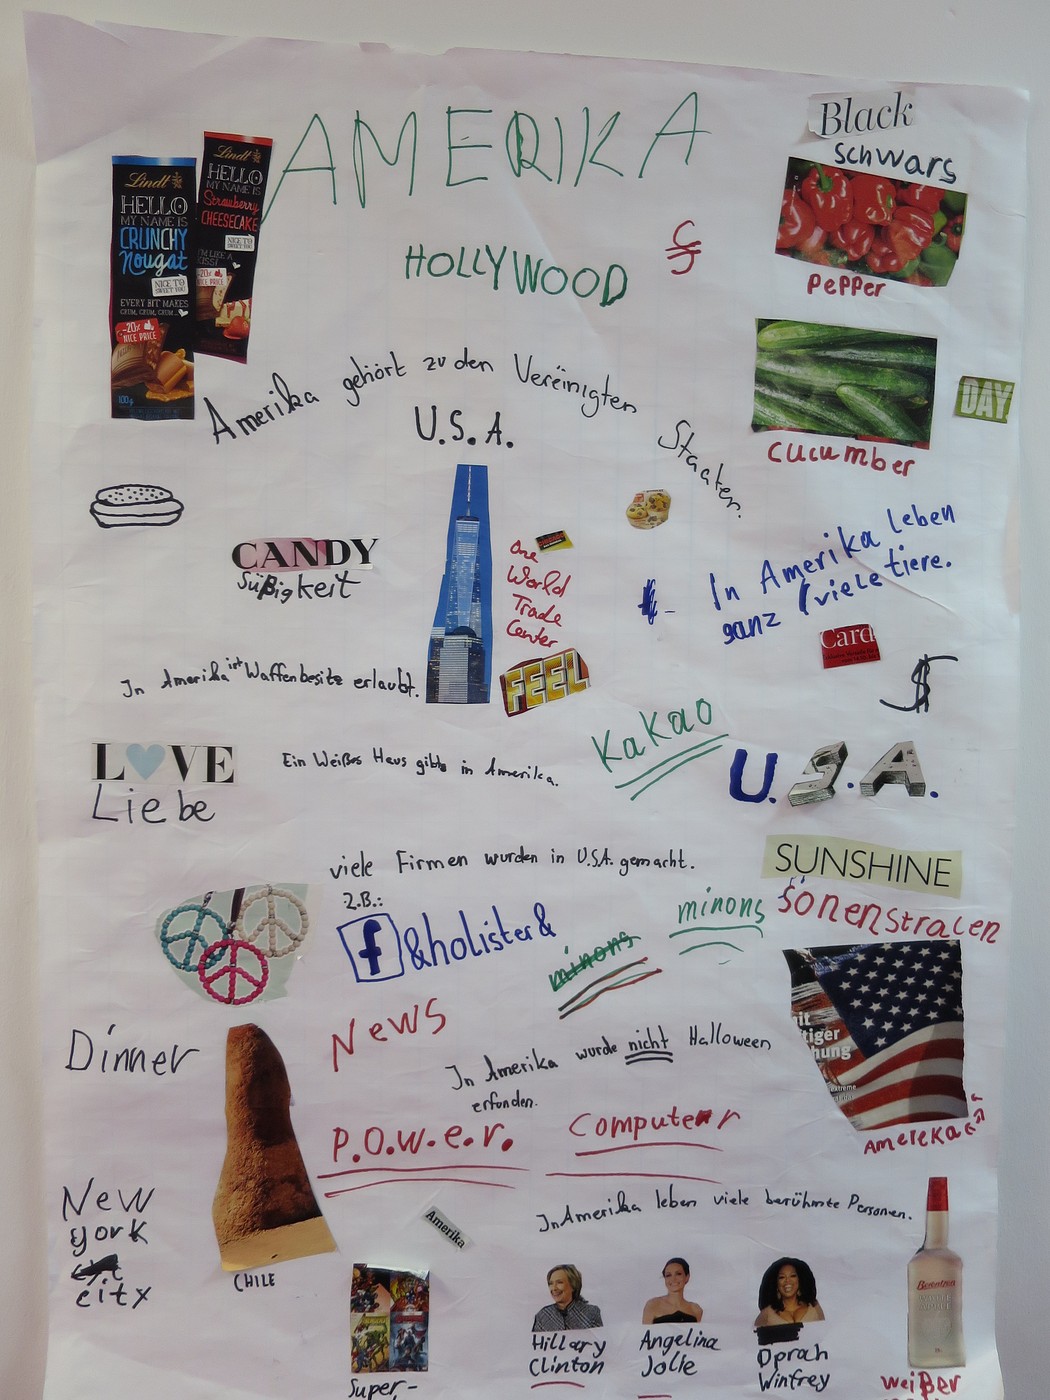 AMERIKA
HOLLYWOOD
Black
schwars
Lindt
HELLO
MY NAME IS
CRUNCHY
Nougat
NICE TO
SWEET YOU
EVERY BIT MAKES
CRUM, CRUM, CRUM...
-20%
NICE PRICE
100g
Lindt
HELLO
MY NAME IS
Strawberry
CHEESECAKE
NICE TO
SWEET YOU
-20%
NICE PRICE
pepper
cucumber
DAY
Amerika gehört zu den Vereinigten Staaten.
U.S.A.
CANDY
Süßigkeit
One
World
Trade
Center
FEEL
In Amerika leben
ganz viele tiere.
Card
$
In Amerika ist Waffenbesitz erlaubt.
KaKao
LOVE
Liebe
Ein Weißes Haus gibts in Amerika.
U.S.A.
viele Firmen wurden in U.S.A. gemacht.
z.B.:
f &holister&
minons
minons
SUNSHINE
sonenstralen
it
tiger
hung
extreme
Amereka
News
Dinner
In Amerika wurde nicht Halloween
erfunden.
P.O.w.e.r.
Computer
New
york
city
CHILE
Amerika
In Amerika leben viele berühmte Personen.
Hillary
Clinton
Angelina
Jolie
Oprah
Winfrey
Berentzen
Super-
weißer